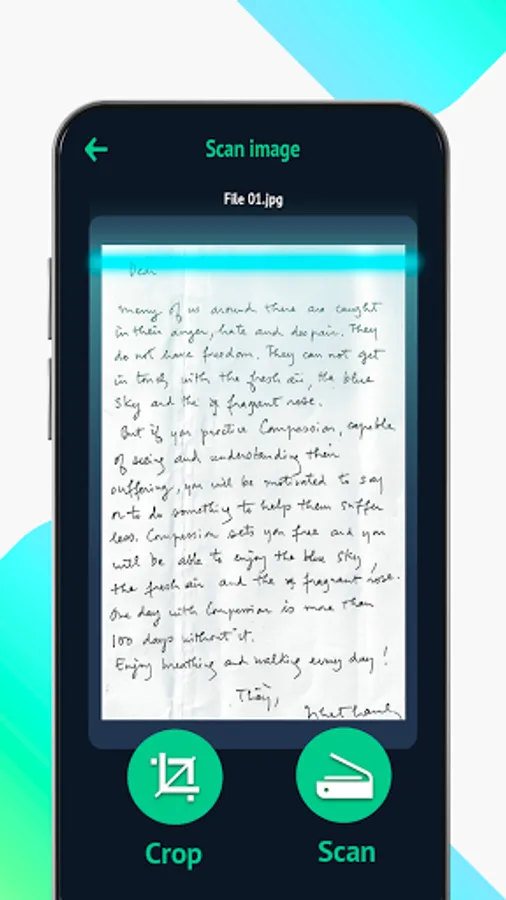 Scan image
File 01.jpg
Dear
many of us around there are caught
in their anger, hate and despair. They
do not have freedom. They can not get
in touch with the fresh air, the blue
sky and the fragrant rose.
But if you practice Compassion, capable
of seeing and understanding their
suffering, you will be motivated to say
or to do something to help them suffer
less. Compassion sets you free and you
will be able to enjoy the blue sky,
the fresh air and the fragrant rose.
One day with Compassion is more than
100 days without it.
Enjoy breathing and walking every day!
Thầy,
Nhat Hanh
Crop
Scan